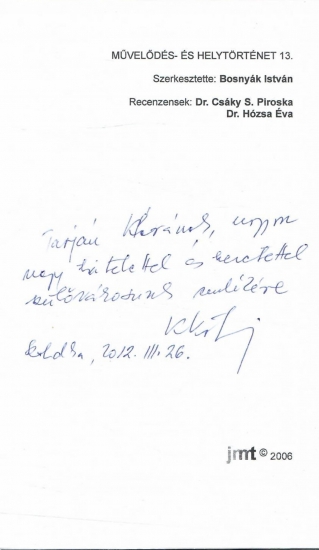 MŰVELŐDÉS- ÉS HELYTÖRTÉNET 13.
Szerkesztette: Bosnyák István
Recenzensek: Dr. Csáky S. Piroska
Dr. Hózsa Éva
Tarján Klárának, nagyon
nagy tisztelettel és szeretettel
szülővárosunk emlékére
2012. III. 26.
jmt © 2006